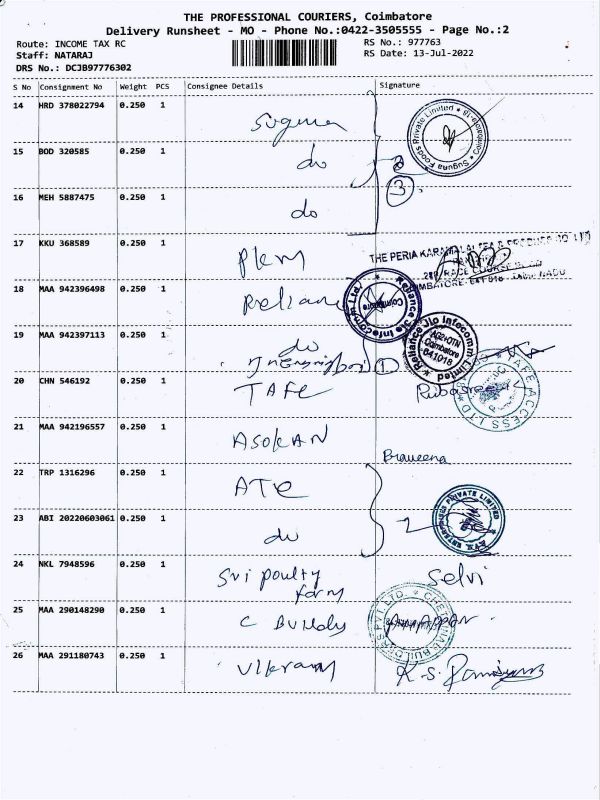 THE PROFESSIONAL COURIERS, Coimbatore
Delivery Runsheet - MO - Phone No.:0422-3505555 - Page No.:2
Route: INCOME TAX RC RS No.: 977763
Staff: NATARAJ RS Date: 13-Jul-2022
DRS No.: DCJB97776302
S No Consignment No Weight PCS Consignee Details Signature
14 HRD 378022794 0.250 1 Suguna
Suguna Foods Private Limited * Coimbatore-18 *
15 BOD 320585 0.250 1 do
3
16 MEH 5887475 0.250 1 do
17 KKU 368589 0.250 1
THE PERIA KARAMALAI TEA & PRODUCE CO. LTD
RACE COURSE ROAD
COIMBATORE-641 018 TAMIL NADU
18 MAA 942396498 0.250 1 Reliance
Reliance Jio Infocomm Ltd. Coimbatore
19 MAA 942397113 0.250 1 do
1
Reliance Jio Infocomm Limited Coimbatore -641018
20 CHN 546192 0.250 1 TAFE
TAFE ACCESS LTD
21 MAA 942196557 0.250 1 ASOKAN Praveena
22 TRP 1316296 0.250 1 ATE
23 ABI 20220603061 0.250 1 do 2
PRIVATE LIMITED
24 NKL 7948596 0.250 1 Sri poulty Selvi
farm
25 MAA 290148290 0.250 1 C Buildy
26 MAA 291180743 0.250 1 Vikram K.S.